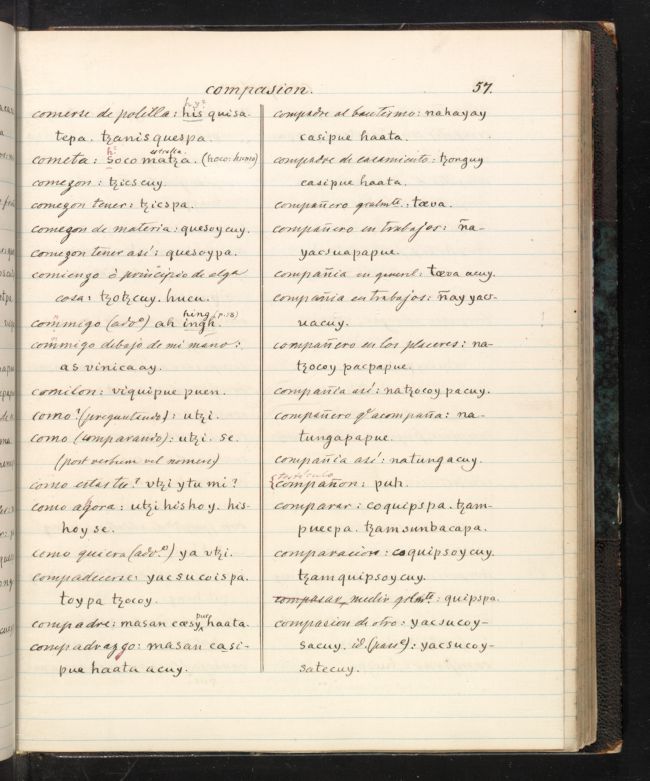 compasion. 57.
comerse de polilla: his quisa-
tepa. tzanis quespa.
cometa: soco matza. (hoco: humo)
comezon: tzicscuy.
comezon tener: tzicspa.
comezon de materia: quesoycuy.
comezon tener asi: quesoypa.
comienzo ò principio de alga
cosa: tzotzcuy. hucu.
commigo (ado°) ah ingh. hing (p:18)
commigo debajo de mi mano:
as vinicaay.
comilon: viquipue puen.
como? (preguntando): utzi.
como (comparando): utzi. se.
(post verbum vel nomen)
como estas tu? vtzi ytu mi?
como agora: utzi hishoy. his-
hoy se.
como quiera (ado.°) ya vtzi.
compadecerse: yacsucoispa.
toypa tzocoy.
compadre: masan casypue haata.
compadrazgo: masan casi-
pue haata acuy.
compadre al bautismo: nahayay
casipue haata.
compadre de casamiento: tzonguy
casipue haata.
compañero gralmte: tæva.
compañero en trabajos: ña-
yacsuapapue.
compañia en general: tæva acuy.
compañia en trabajos: ñay yacs-
uacuy.
compañero en los placeres: na-
tzocoy pacpapue.
compañia asi: natzocoy pacuy.
compañero qe acompaña: na-
tungapapue.
compañia asi: natungacuy.
testiculo
compañon: puh.
comparar: coquipspa. tzam-
puecpa. tzamsunbacapa.
comparacion: coquipsoycuy.
tzamquipsoycuy.
compasar, medir gralmte: quipspa.
compasion de otro: yacsucoy-
sacuy. id. (passe): yacsucoy-
satecuy.